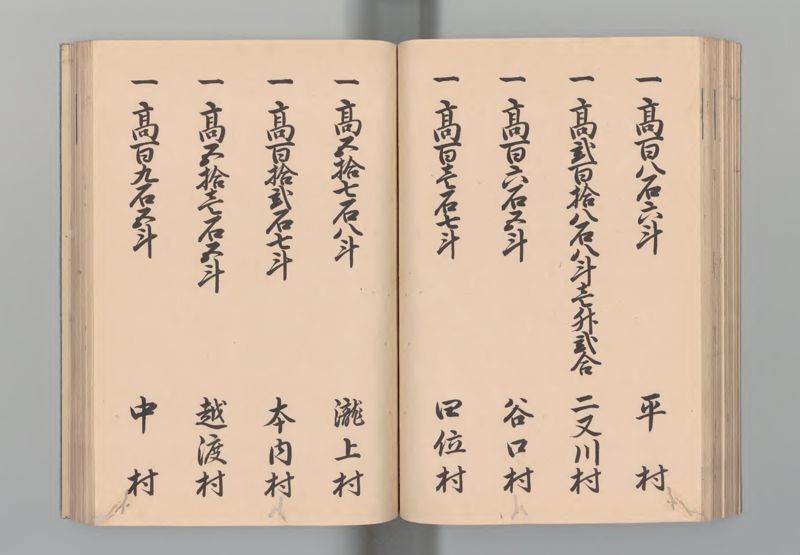 一 高百八石六斗 平村
一 高弐百拾八石八斗壱升弐合 二又川村
一 高百六石五斗 谷口村
一 高百壱石七斗 口位村
一 高五拾七石八斗 瀧上村
一 高百拾弐石七斗 本内村
一 高五拾壱石五斗 越渡村
一 高百九石五斗 中村